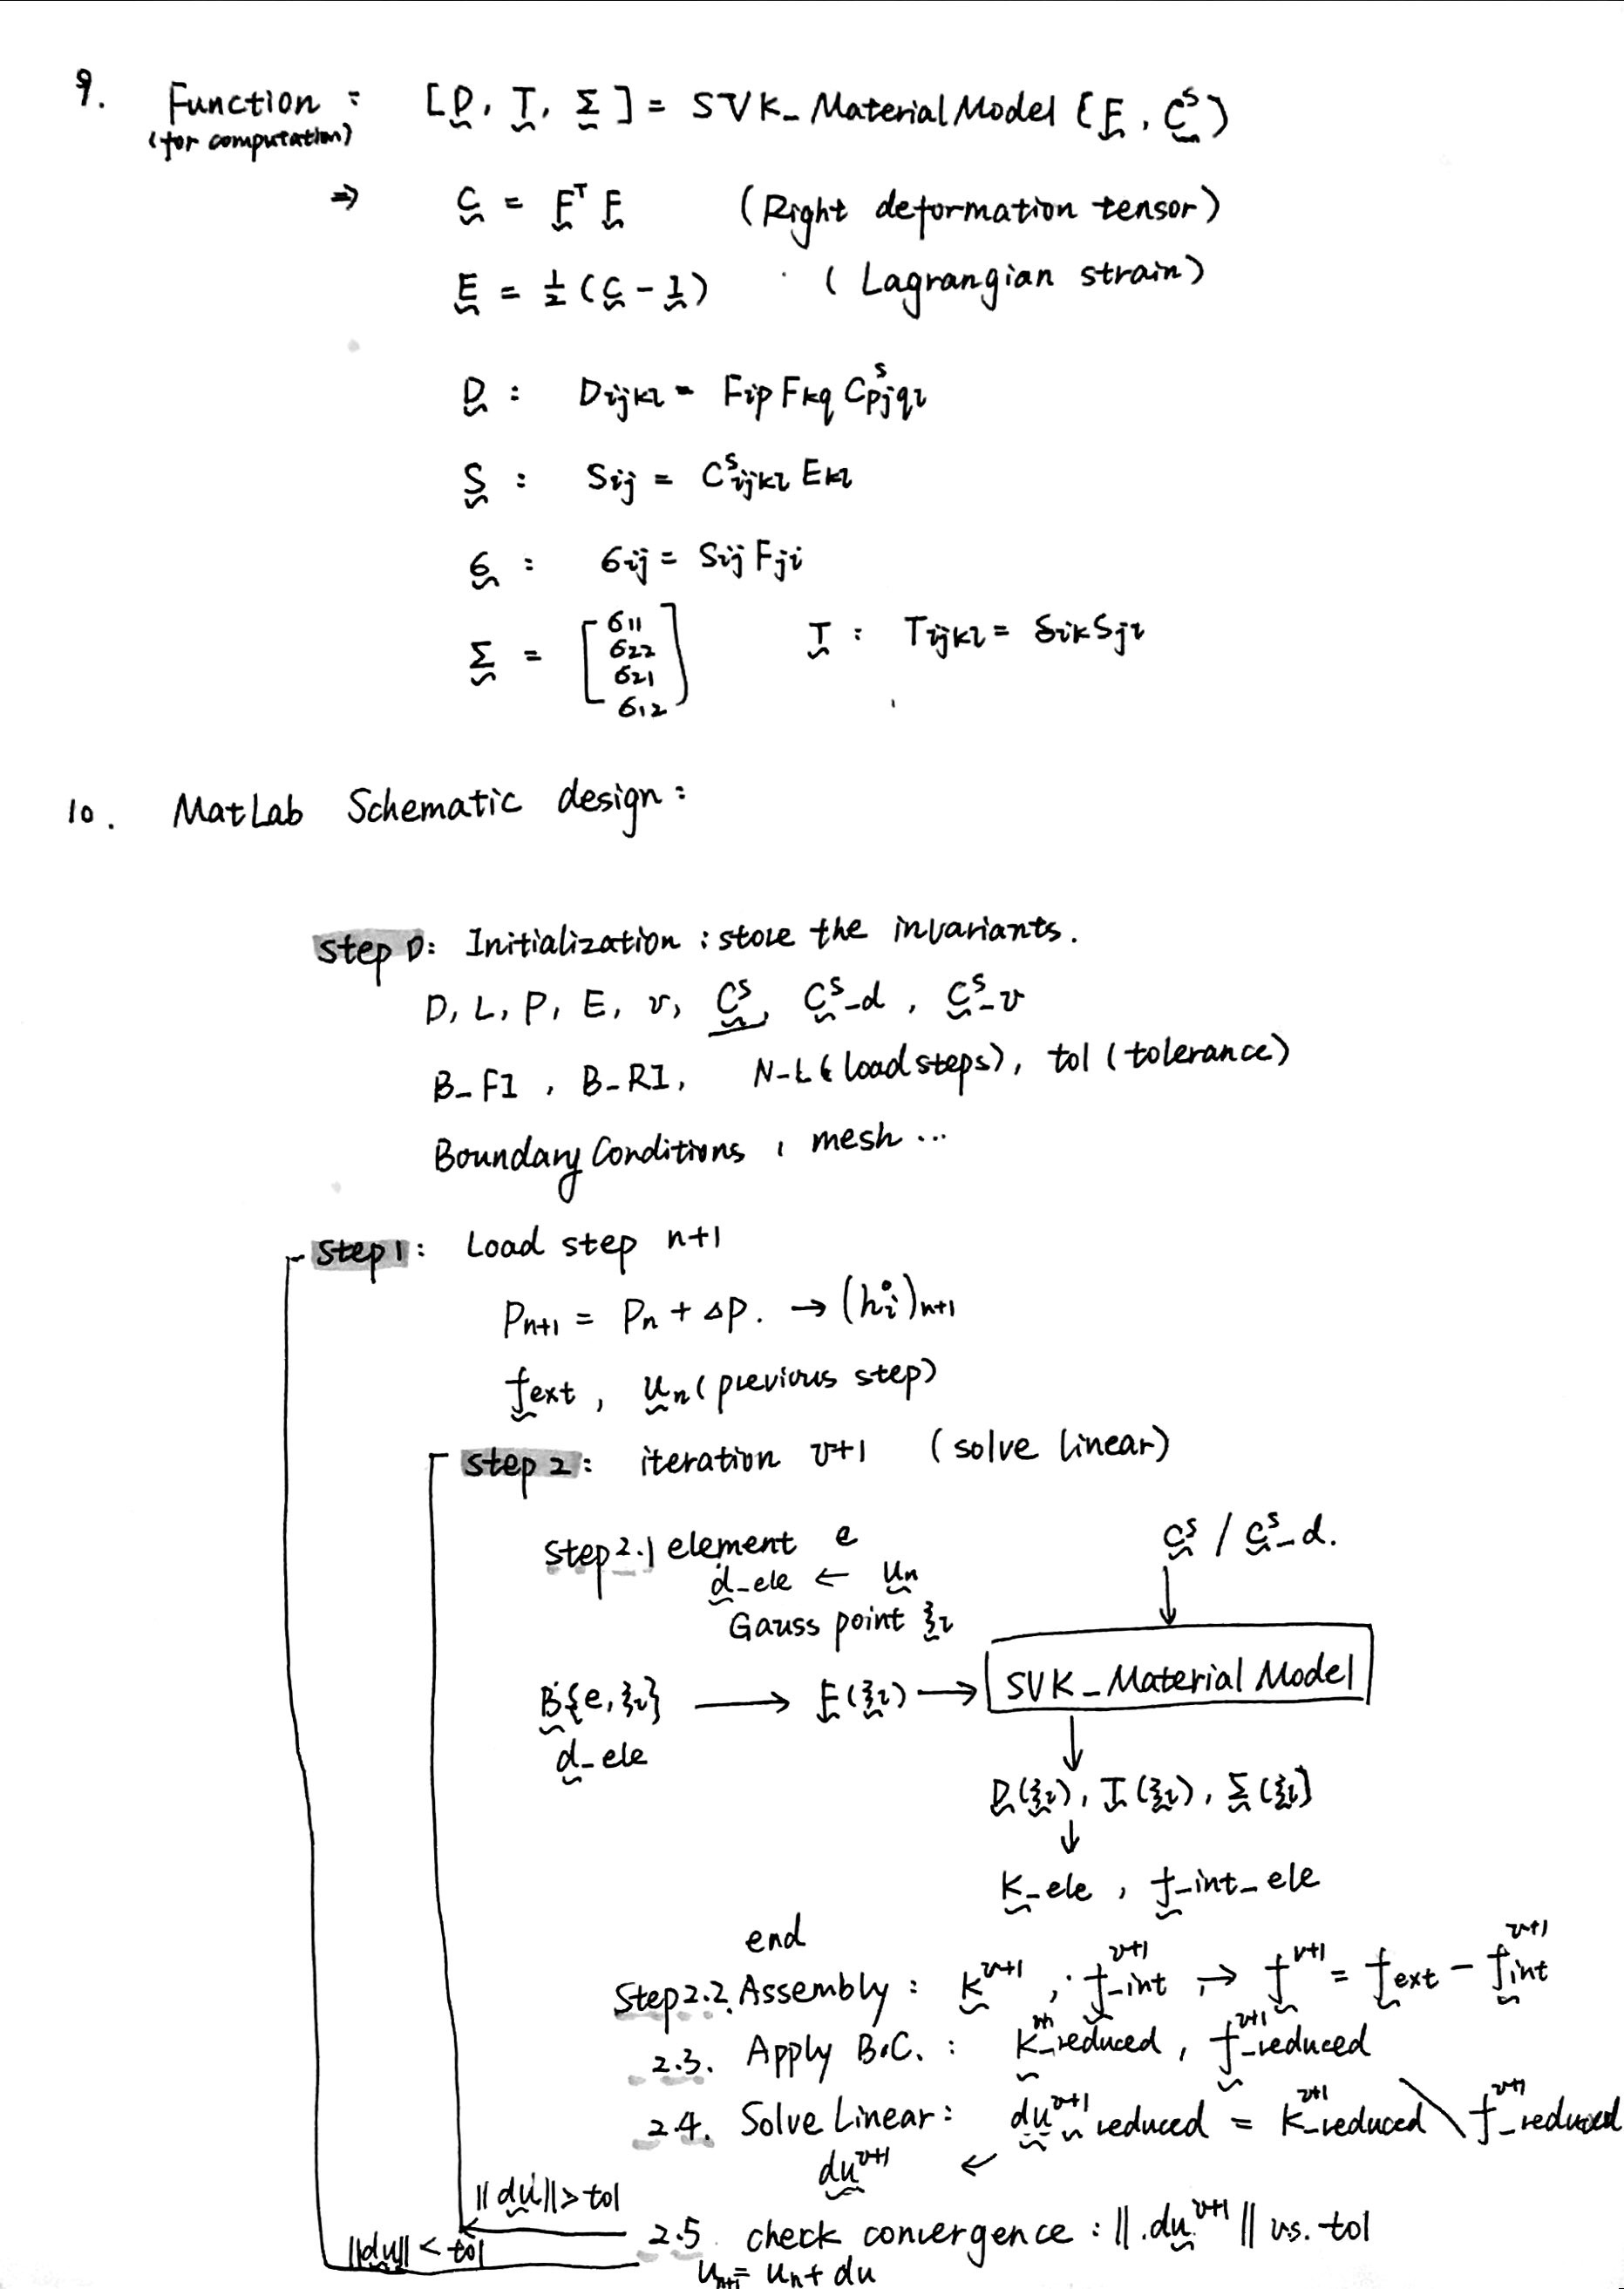 9. Function : [D, T, Σ] = SVK_MaterialModel (F, C^S)
(for computation)
⇒ C = F^T F (Right deformation tensor)
E = 1/2 (C - 1) (Lagrangian strain)
D : Dijkl = Fip Fkq C^S pjql
S : Sij = C^S ijkl Ekl
σ : σij = Sij Fji
Σ = [σ11 σ22 σ21 σ12] T : Tijkl = δik Sjl
10. MatLab Schematic design :
Step 0: Initialization : store the invariants.
D, L, P, E, v, C^S, C^S_d, C^S_v
B_FI, B_RI, N-L (load steps), tol (tolerance)
Boundary Conditions, mesh ...
Step 1: Load step n+1
Pn+1 = Pn + ΔP. → (h°i)n+1
fext, un (previous step)
Step 2: iteration v+1 (solve linear)
Step 2.1 element e C^S / C^S_d.
d_ele ← un
Gauss point ξl
B{e, ξl} → F(ξl) → SVK_Material Model
d_ele
D(ξl), T(ξl), Σ(ξl)
K_ele, f_int_ele
end
Step 2.2. Assembly : K^v+1, f^v+1_int, → f^v+1 = fext - f^v+1 int
2.3. Apply B.C. : K_reduced, f^v+1_reduced
2.4. Solve Linear : du^v+1_reduced = K^v+1_reduced \ f^v+1_reduced
du^v+1 ←
||du|| > tol
2.5 check convergence : ||du^v+1|| vs. tol
||du|| < tol
un+1 = un + du